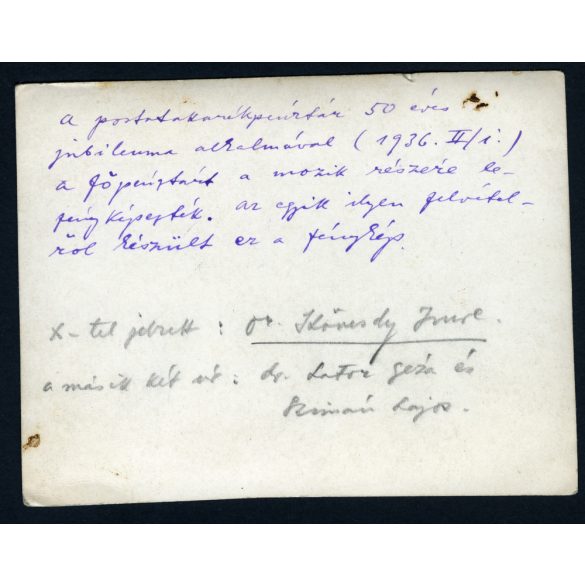 A postatakarékpénztár 50 éves
jubileuma alkalmával (1936. II/1.)
a főpénztárt a mozik részére le-
fényképezték. az egyik ilyen felvétel-
ről készült ez a fénykép.
X-tel jelzett: Dr. Kövesdy Imre.
a másik két úr: dr. Lator Géza és
Lajos.